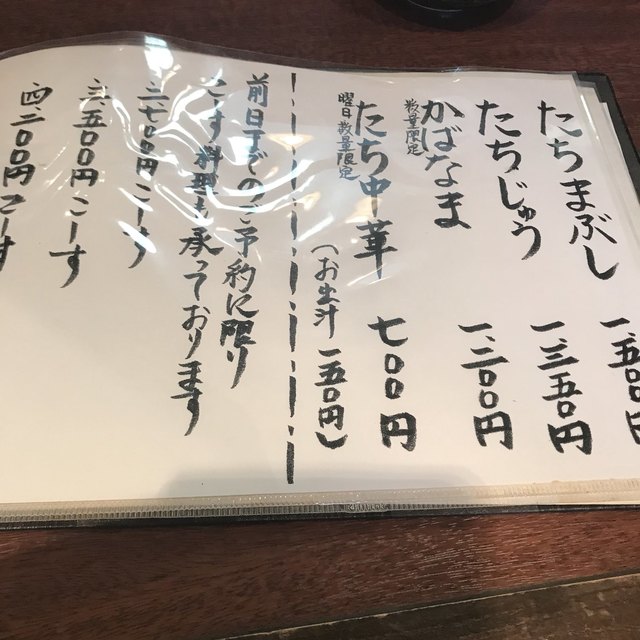 たちまぶし 一、五〇〇円
たちじゅう 一、三五〇円
かばなま 一、二〇〇円
数量限定
たち中華 七〇〇円
曜日数量限定
(お出汁 一五〇円)
前日までのご予約に限り
こーす料理も承っております
二、七〇〇円こーす
三、五〇〇円こーす
四、二〇〇円こーす